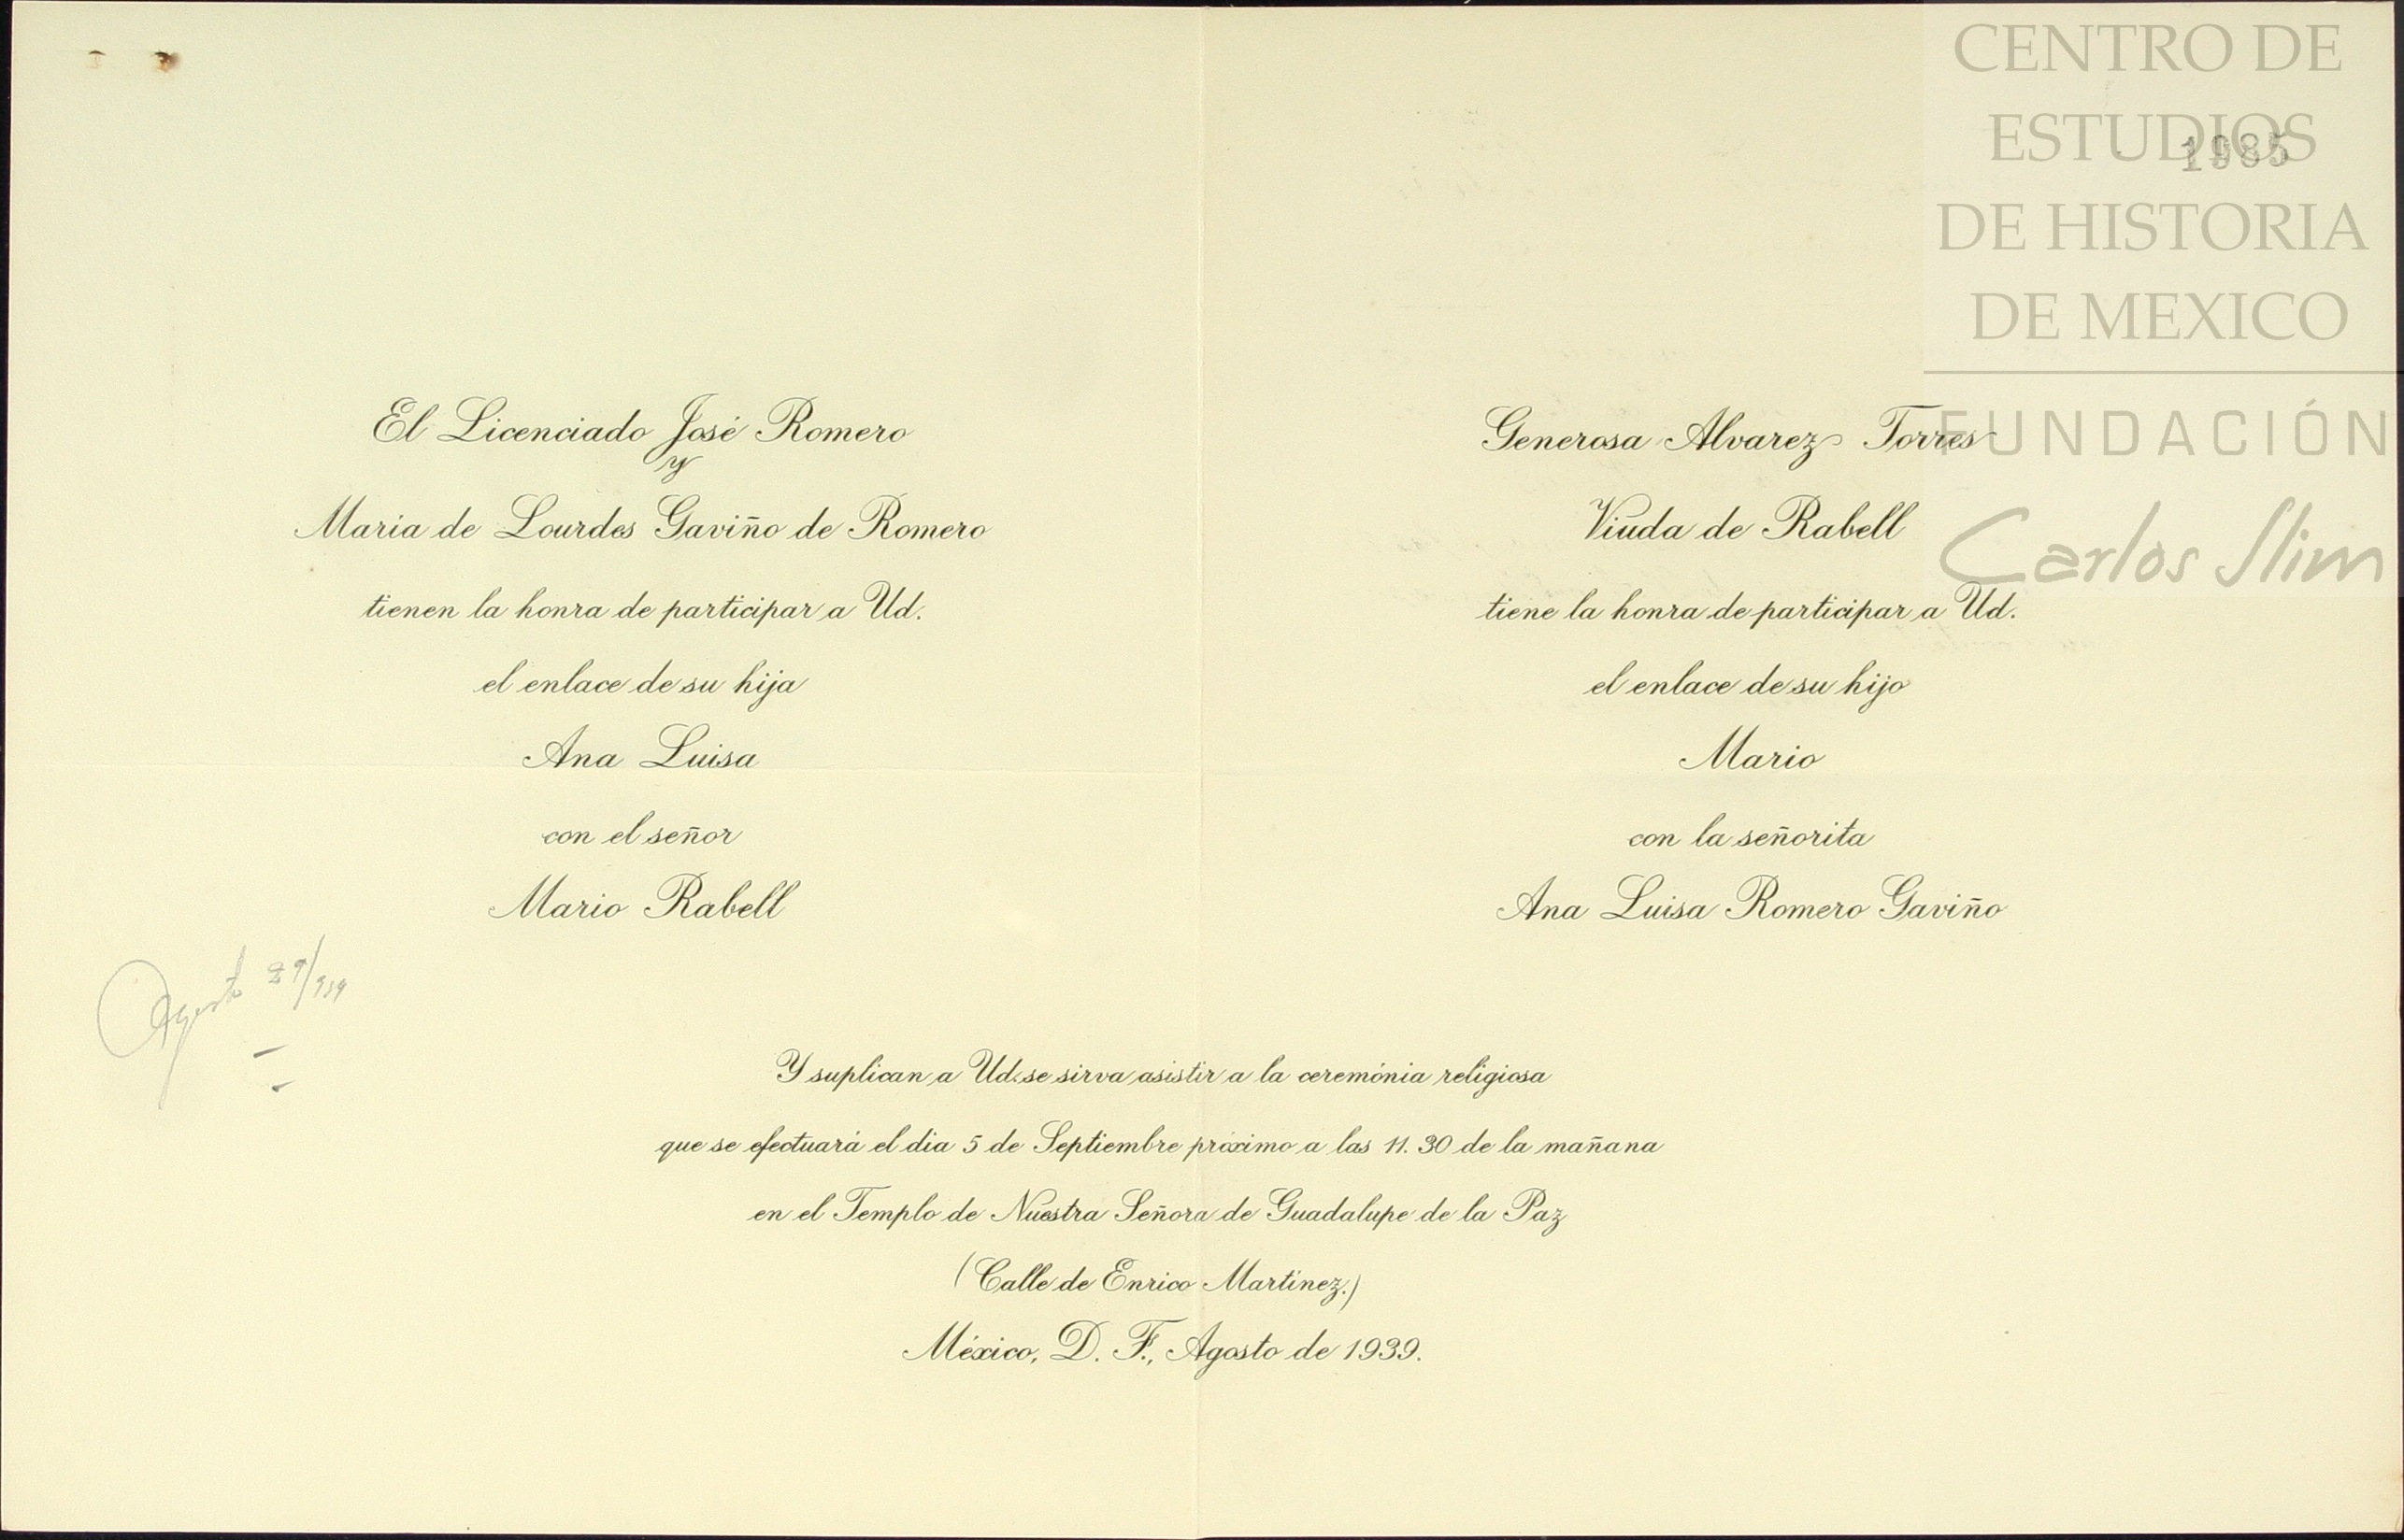 El Licenciado José Romero
y
Maria de Lourdes Gaviño de Romero
tienen la honra de participar a Ud.
el enlace de su hija
Ana Luisa
con el señor
Mario Rabell
Generosa Alvarez Torres
Viuda de Rabell
tiene la honra de participar a Ud.
el enlace de su hijo
Mario
con la señorita
Ana Luisa Romero Gaviño
Agosto 29/939
Y suplican a Ud. se sirva asistir a la ceremónia religiosa
que se efectuará el dia 5 de Septiembre próximo a las 11.30 de la mañana
en el Templo de Nuestra Señora de Guadalupe de la Paz
(Calle de Enrico Martinez.)
México, D. F., Agosto de 1939.
1985
CENTRO DE
ESTUDIOS
DE HISTORIA
DE MEXICO
FUNDACIÓN
Carlos Slim